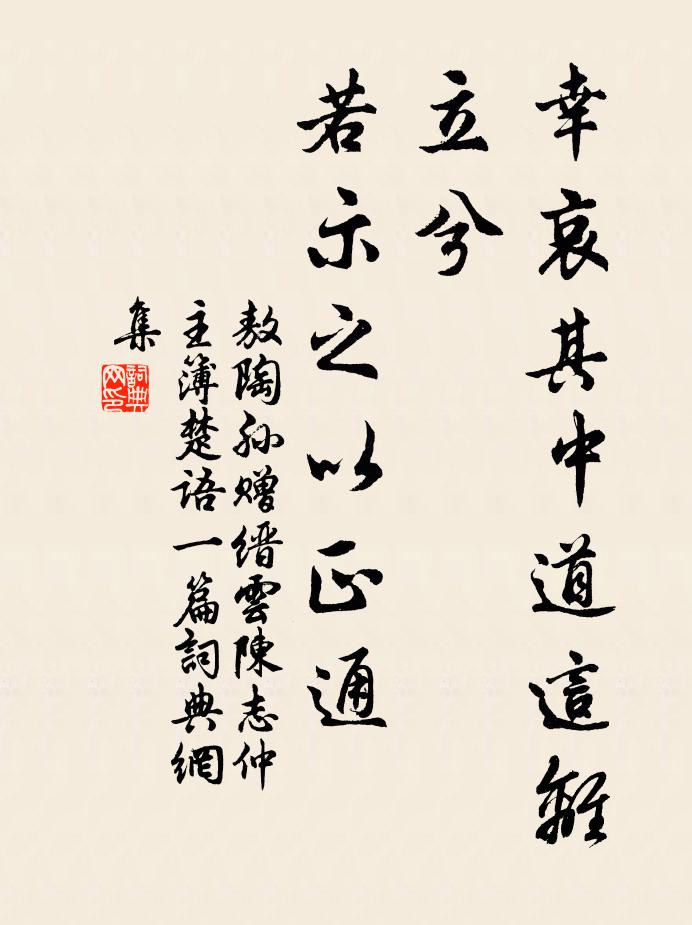 幸哀其中道這離
立兮
若示之以正通
敖陶孙赠缙雲陳志仲
主簿楚語一篇詞典網
集
詞典
网印